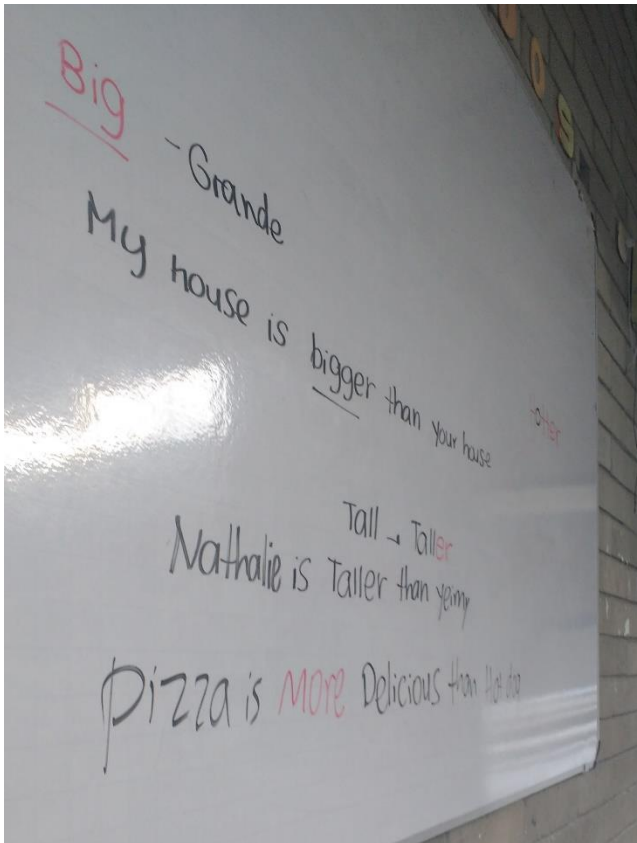 Big
- Grande
My house is bigger than your house
Tall → Taller
Nathalie is Taller than yeimy
Pizza is more Delicious than Hot dog